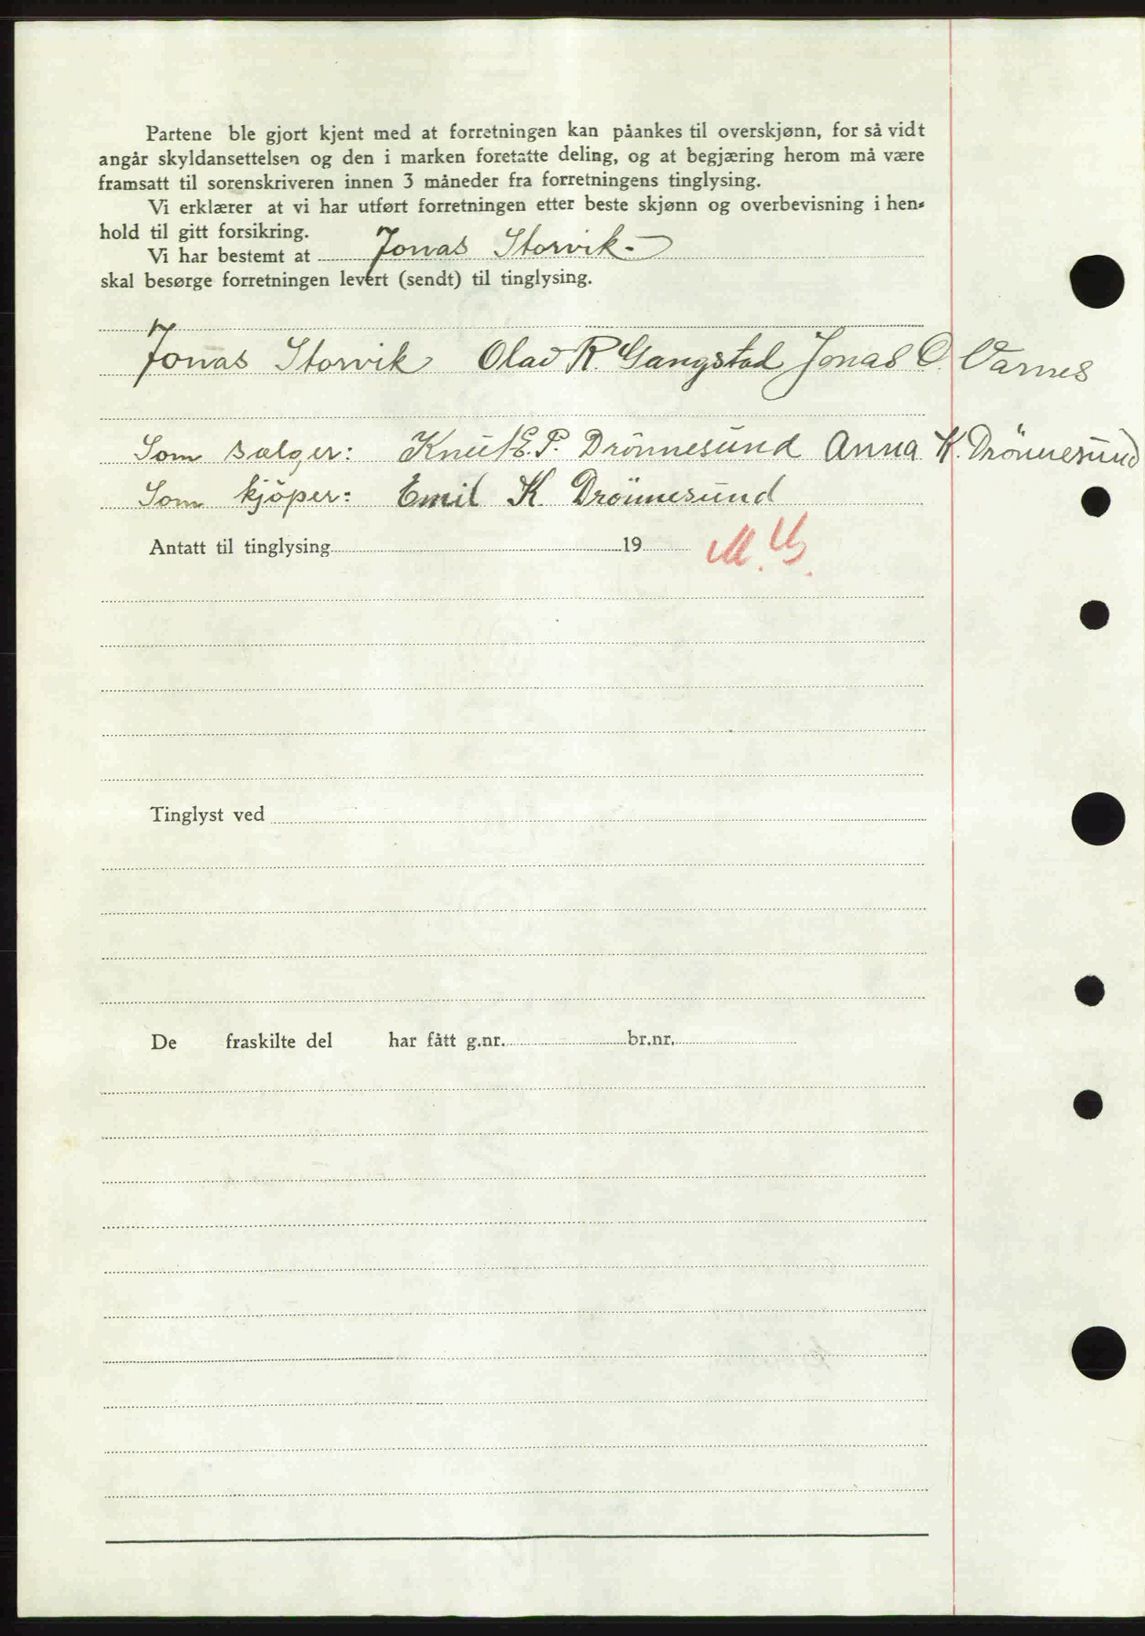 Partene ble gjort kjent med at forretningen kan påankes til overskjønn, for så vidt
angår skyldansettelsen og den i marken foretatte deling, og at begjæring herom må være
framsatt til sorenskriveren innen 3 måneder fra forretningens tinglysing.
Vi erklærer at vi har utført forretningen etter beste skjønn og overbevisning i hen-
hold til gitt forsikring.
Vi har bestemt at Jonas Storvik.
skal besørge forretningen levert (sendt) til tinglysing.
Jonas Storvik Olav R. Gangstad Jonas O. Varnes
Som sælger: Knut E. P. Drönnesund Anna K. Drönnesund
Som kjöper: Emil K Drönnesund
Antatt til tinglysing 19 M. U.
Tinglyst ved
De fraskilte del har fått g.nr. br.nr.